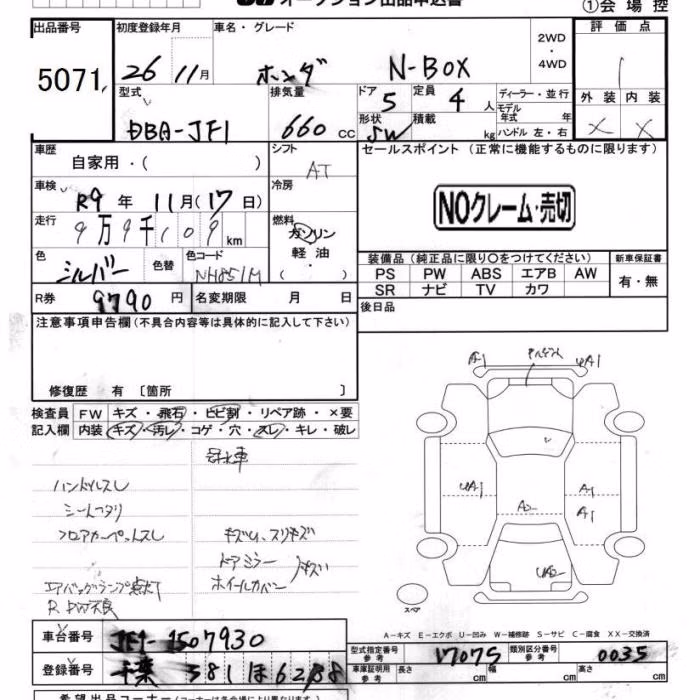 オークション出品申込書
①会場控
出品番号 初度登録年月 車名・グレード 2WD・4WD 評価点
5071 26 11月 ホンダ N-BOX
型式 排気量 ドア 定員 ディーラー・並行 外装 内装
DBA-JF1 660 CC 5 4人 モデル年式 年
形状 SW 積載 kg ハンドル 左・右 × ×
車歴 シフト セールスポイント (正常に機能するものに限ります)
自家用・( ) AT
車検 R9年 11月(17日) 冷房
NOクレーム・売切
走行 9万9千109km 燃料 ガソリン
軽油・
( )
色 シルバー 色替 色コード NH851M
装備品 (純正品に限り〇をつけてください) 新車保証書
PS PW ABS エアB AW 有・無
SR ナビ TV カワ
R券 9790円 名変期限 月 日 後日品
注意事項申告欄(不具合内容等は具体的に記入して下さい)
修復歴 有 〔箇所 〕
検査員 FW キズ・飛石・ヒビ割・リペア跡・×要
記入欄 内装 キズ・汚レ・コゲ・穴・スレ・キレ・破レ
ハンドルスレ
シートヘタリ
フロアカーペットスレ
キズU、スリキズ
ドアミラー
ホイールカバー キズ
エアバッグランプ点灯
R PW不良
A-1
UA1
UA1
A-1
A-1
A2-
UA2-
スペア
A-キズ E-エクボ U-凹み W-補修跡 S-サビ C-腐食 XX-交換済
車台番号 JF1-1507930
型式指定番号 参考 17075 類別区分番号 参考 0035
登録番号 千葉 581 ほ 6288
車庫証明用 参考 長さ cm 幅 cm 高さ cm
希望出品コーナー